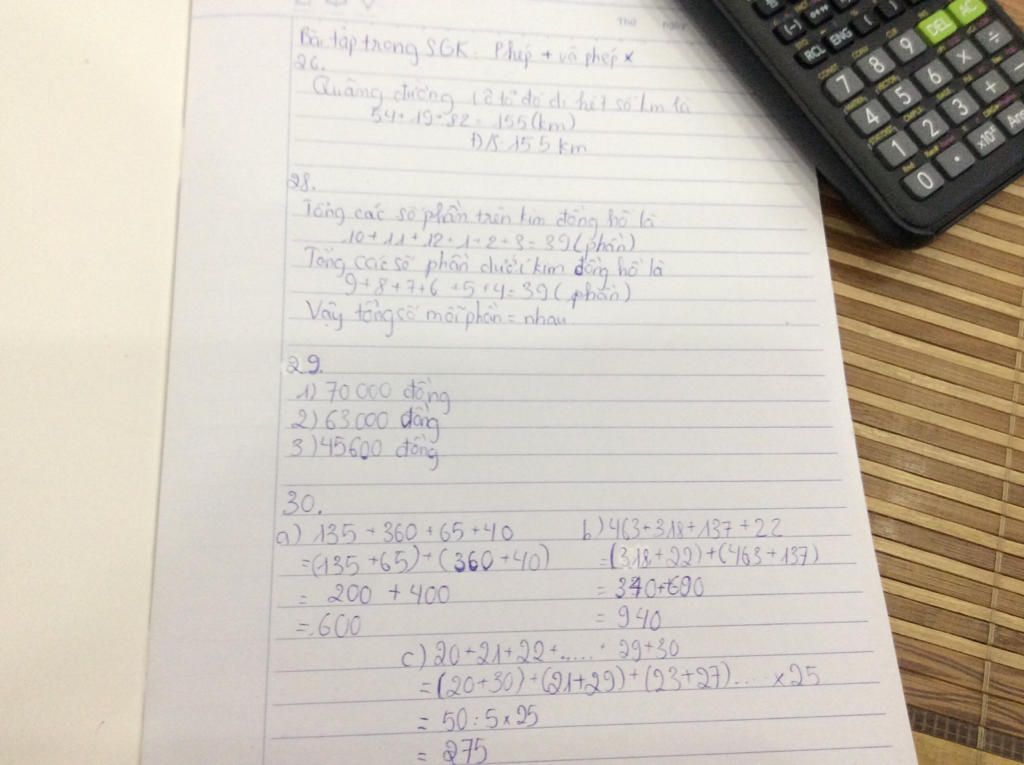 Thứ ngày
Bài tập trong SGK: Phép + và phép x
26.
Quãng đường ô tô đó đi hết số km là
54+19+82=155(km)
Đ/S: 155km
28.
Tổng các số phần trên kim đồng hồ là
10+11+12+1+2+3=39(phần)
Tổng các số phần dưới kim đồng hồ là
9+8+7+6+5+4=39(phần)
Vậy tổng số mỗi phần = nhau
29.
1) 70 000 đồng
2) 63 000 đồng
3) 45600 đồng
30.
a) 135+360+65+40 b) 463+318+137+22
=(135+65)+(360+40) =(318+22)+(463+137)
= 200 + 400 = 340+600
= 600 = 940
c) 20+21+22+.....+ 29+30
=(20+30)+(21+29)+(23+27).... x25
= 50:5x25
= 275
RCL ENG ( ) DEL AC
7 8 9
4 5 6 × ÷
1 2 3 + −
0 . ×10ˣ Ans